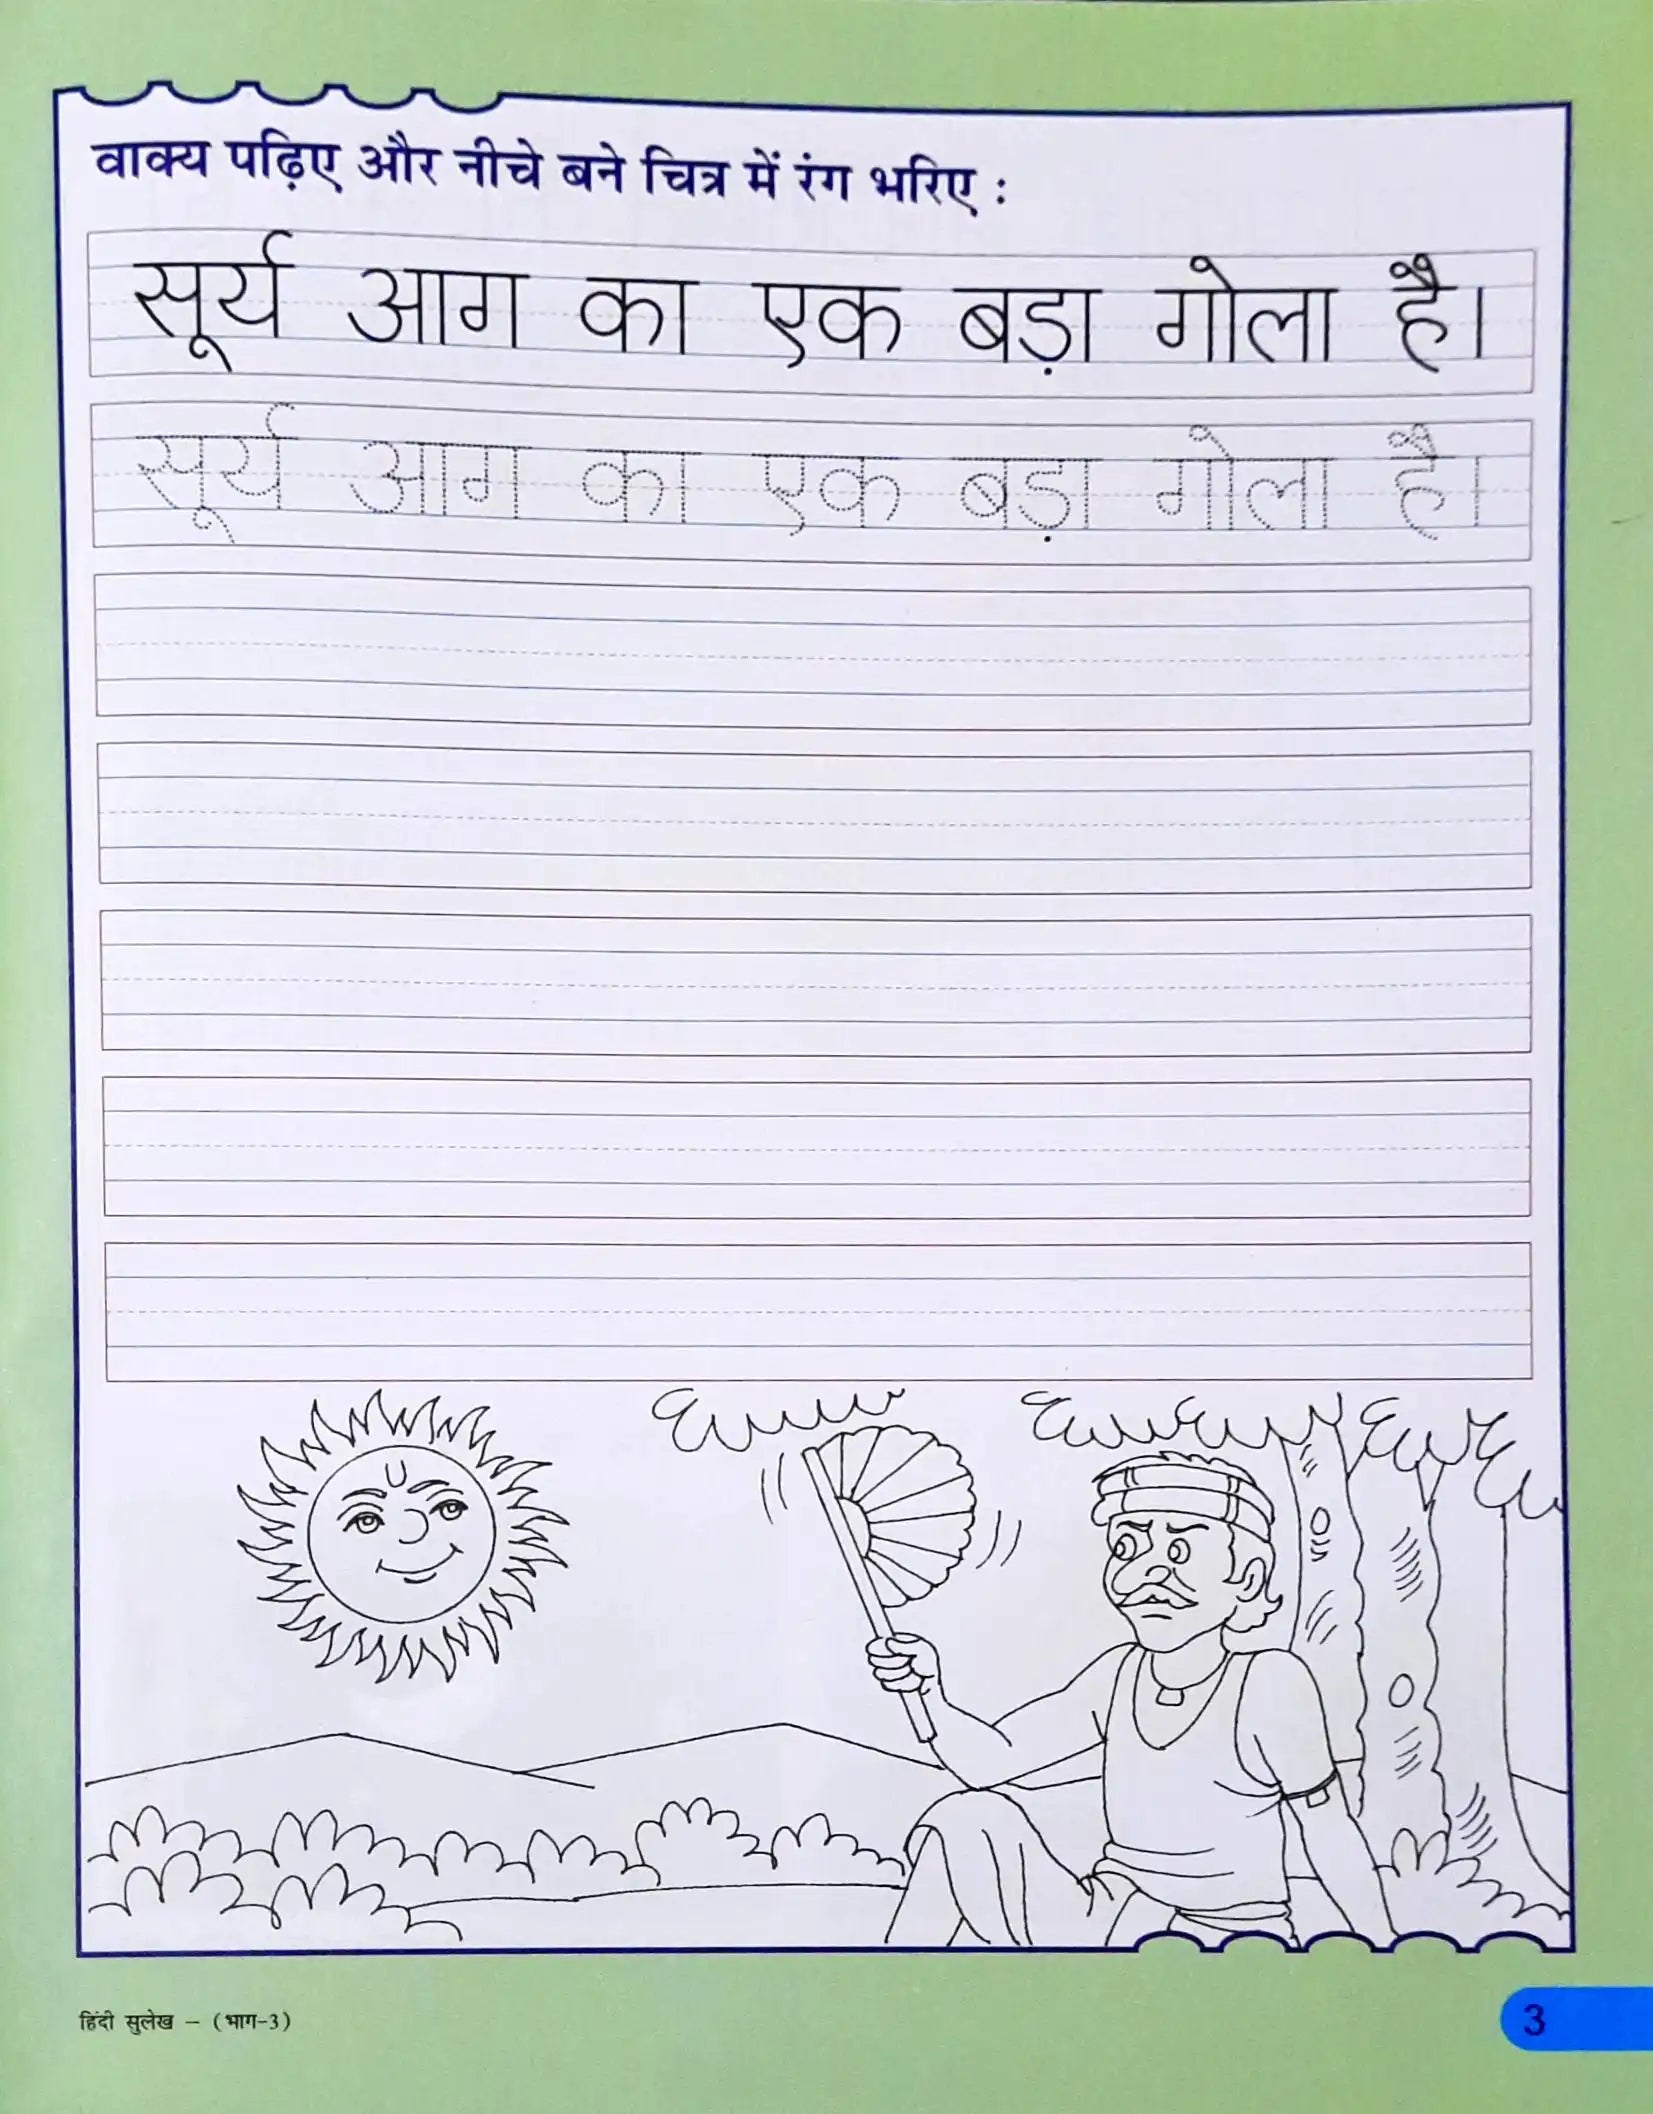 वाक्य पढ़िए और नीचे बने चित्र में रंग भरिए :
सूर्य आग का एक बड़ा गोला है।
सूर्य आग का एक बड़ा गोला है।
हिंदी सुलेख – (भाग-3)
3